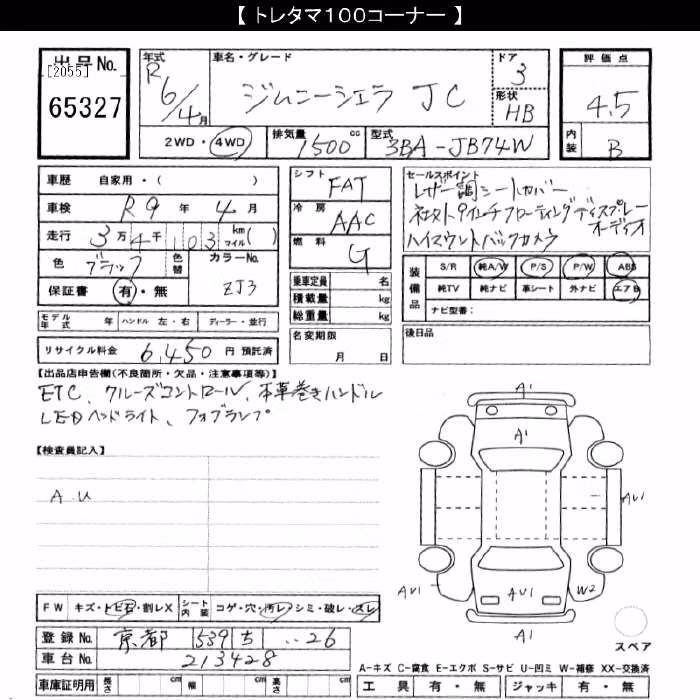 【 トレタマ100コーナー 】
出品No.
[2055]
65327
年式 R6/4月
車名・グレード ジムニーシエラ JC
ドア 3
形状 HB
評価点 4.5
内装 B
2WD・4WD
排気量 1500 cc
型式 3BA-JB74W
車歴 自家用・( )
車検 R9年 4月
走行 3万4千103 km マイル( )
色 ブラック 色替
カラーNo. ZJ3
保証書 有・無
モデル年式 年 ハンドル 左・右 ディーラー・並行
リサイクル料金 6,450 円 預託済
シフト FAT
冷房 AAC
燃料 G
乗車定員 名
積載量 kg
総重量 kg
名変期限
月 日
セールスポイント
レザー調シートカバー
社外9インチフローティングディスプレー
オーディオ
ハイマウントバックカメラ
装備品
S/R 純A/W P/S P/W ABS
純TV 純ナビ 革シート 外ナビ エアB
ナビ型番:
後日品
【出品店申告欄(不良箇所・欠品・注意事項等)】
ETC、クルーズコントロール、本革巻きハンドル
LEDヘッドライト、フォグランプ
【検査員記入】
A.U
A1
A1
AU1
AU1
AU1
W2
A1
スペア
FW キズ・トビ石・割レX
シート内装 コゲ・穴・汚レ・シミ・破レ・スレ
登録No. 京都 539 ち ‥26
車台No. 213428
車庫証明用 長さ cm 幅 cm 高さ cm
A-キズ C-腐食 E-エクボ S-サビ U-凹ミ W-補修 XX-交換済
工具 有・無 ジャッキ 有・無